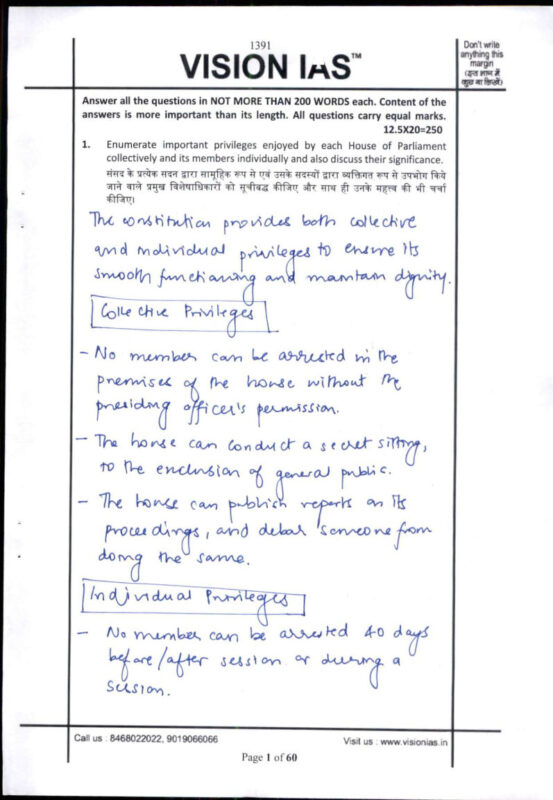 1391
VISION IAS™
Don't write
anything this
margin
(इस भाग में
कुछ ना लिखें)
Answer all the questions in NOT MORE THAN 200 WORDS each. Content of the
answers is more important than its length. All questions carry equal marks.
12.5X20=250
1. Enumerate important privileges enjoyed by each House of Parliament
collectively and its members individually and also discuss their significance.
संसद के प्रत्येक सदन द्वारा सामूहिक रूप से एवं उसके सदस्यों द्वारा व्यक्तिगत रूप से उपभोग किये
जाने वाले प्रमुख विशेषाधिकारों को सूचीबद्ध कीजिए और साथ ही उनके महत्त्व की भी चर्चा
कीजिए।
The constitution provides both collective
and individual privileges to ensure its
smooth functioning and maintain dignity.
Collective Privileges
- No member can be arrested in the
premises of the house without the
presiding officer's permission.
- The house can conduct a secret sitting,
to the exclusion of general public.
- The house can publish reports on its
proceedings, and debar someone from
doing the same.
Individual Privileges
- No member can be arrested 40 days
before/after session or during a
session.
Call us : 8468022022, 9019066066
Visit us : www.visionias.in
Page 1 of 60